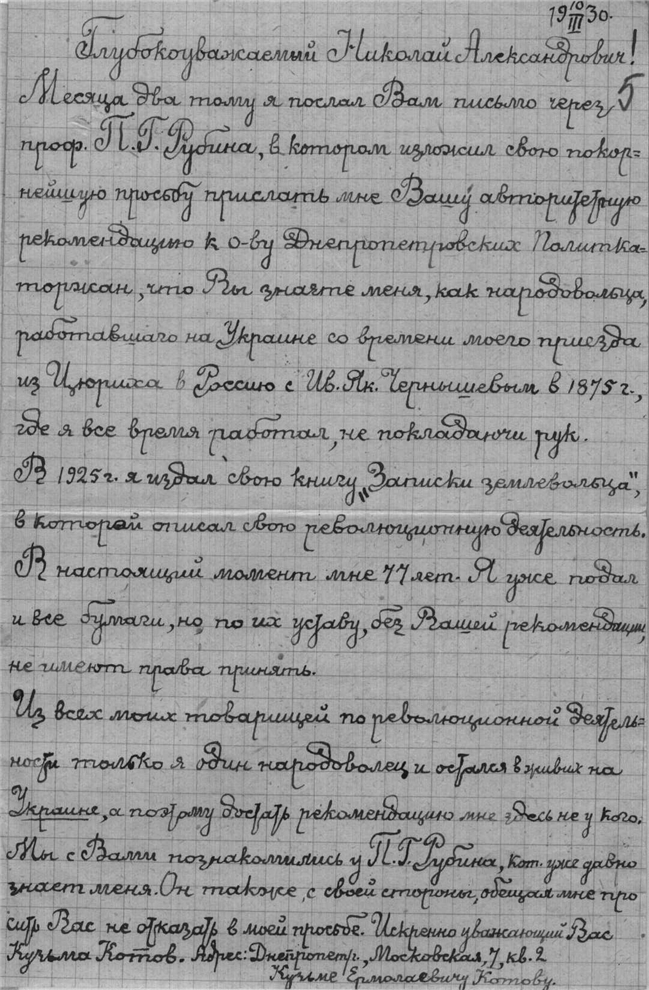 19 10/III 30.
Глубокоуважаемый Николай Александрович!
Месяца два тому я послал Вам письмо через 5
проф. П.Г. Рубина, в котором изложил свою покор=
нейшую просьбу прислать мне Вашу авторитетную
рекомендацию к о-ву Днепропетровских Политка=
торжан, что Вы знаете меня, как народовольца,
работавшаго на Украине со времени моего приезда
из Цюриха в Россию с Ив. Як. Чернышевым в 1875 г.,
где я все время работал, не покладаючи рук.
В 1925 г. я издал свою книгу „Записки землевольца",
в которой описал свою революционную деятельность.
В настоящий момент мне 77 лет. Я уже подал
и все бумаги, но по их уставу, без Вашей рекомендации,
не имеют права принять.
Из всех моих товарищей по революционной деятель-
ности только я один народоволец и остался в живых на
Украине, а поэтому достать рекомендацию мне здесь не у кого.
Мы с Вами познакомились у П.Г. Рубина, кот. уже давно
знает меня. Он также, с своей стороны, обещал мне про
сить Вас не отказать в моей просьбе. Искренно уважающий Вас
Кузьма Котов. Адрес: Днепропетр., Московская, 7, кв. 2
Кузьме Ермолаевичу Котову.